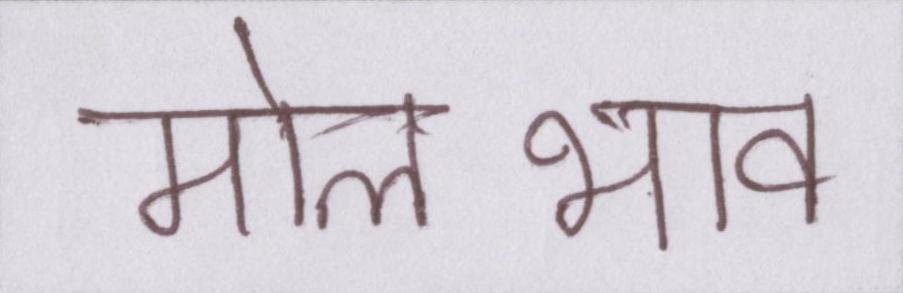 मोल भाव